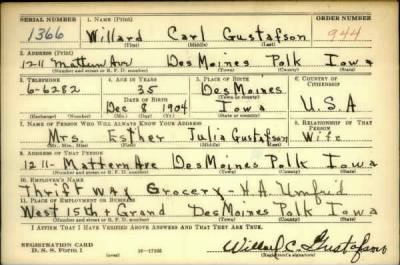 SERIAL NUMBER 1. NAME (Print) ORDER NUMBER
1366 Willard Carl Gustafson 944
(First) (Middle) (Last)
2. ADDRESS (Print)
1211 Mattern Ave Des Moines Polk Iowa
(Number and street or R. F. D. number) (Town) (County) (State)
3. TELEPHONE 4. AGE IN YEARS 5. PLACE OF BIRTH 6. COUNTRY OF CITIZENSHIP
6-6282 35 Des Moines
DATE OF BIRTH (Town or county)
Dec 8 1904 Iowa U.S.A
(Exchange) (Number) (Mo.) (Day) (Yr.) (State or country)
7. NAME OF PERSON WHO WILL ALWAYS KNOW YOUR ADDRESS 8. RELATIONSHIP OF THAT PERSON
Mrs. Esther Julia Gustafson Wife
(Mr., Mrs., Miss) (First) (Middle) (Last)
9. ADDRESS OF THAT PERSON
1211- Mattern Ave Des Moines Polk Iowa
(Number and street or R. F. D. number) (Town) (County) (State)
10. EMPLOYER'S NAME
Thrift Way Grocery - H.A. Umfrid
11. PLACE OF EMPLOYMENT OR BUSINESS
West 15th + Grand Des Moines Polk Iowa
(Number and street or R. F. D. number) (Town) (County) (State)
I AFFIRM THAT I HAVE VERIFIED ABOVE ANSWERS AND THAT THEY ARE TRUE.
REGISTRATION CARD
D. S. S. Form 1 (over) Willard C. Gustafson
(Registrant's signature)